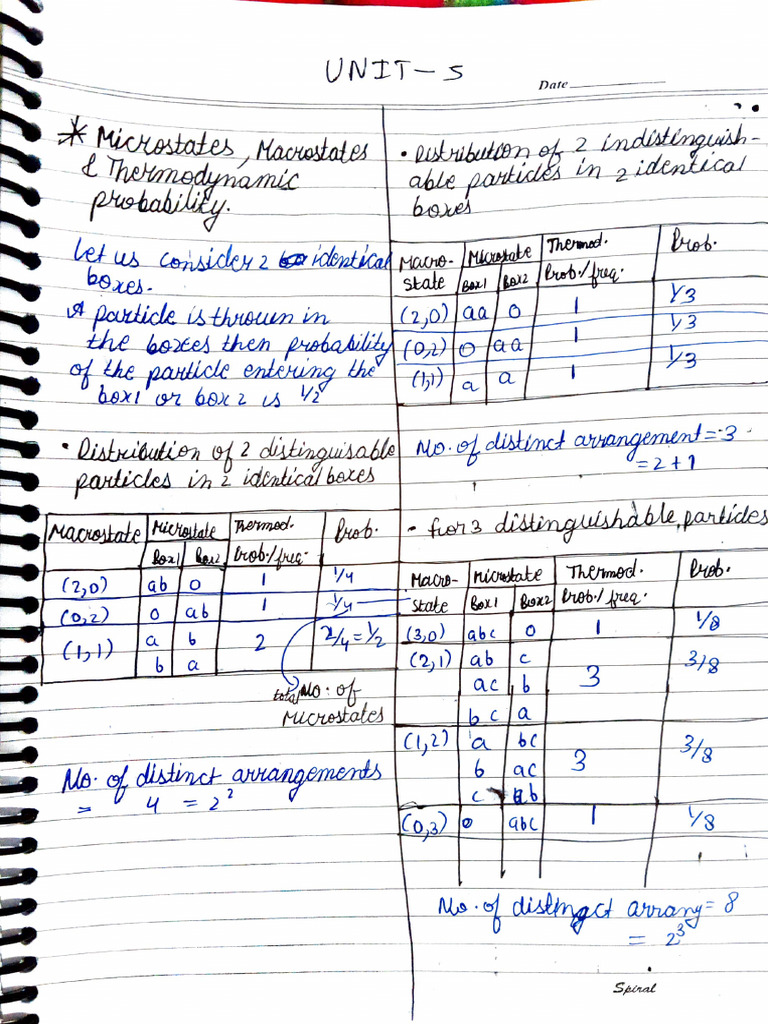 UNIT-5
Date
* Microstates, Macrostates
& Thermodynamic
probability.
Let us consider 2 identical
boxes.
A particle is thrown in
the boxes then probability
of the particle entering the
box1 or box 2 is 1/2
• Distribution of 2 distinguisable
particles in 2 identical boxes
Macrostate Microstate Thermod. Prob.
Box1 Box2 Prob./freq.
(2,0) ab 0 1 1/4
(0,2) 0 ab 1 1/4
(1,1) a b 2 2/4=1/2
b a
total No. of
Microstates
No. of distinct arrangements
= 4 = 2²
• Distribution of 2 indistinguish-
able particles in 2 identical
boxes
Macro- Microstate Thermod. Prob.
state Box1 Box2 Prob./freq.
(2,0) aa 0 1 1/3
(0,2) 0 aa 1 1/3
(1,1) a a 1 1/3
No. of distinct arrangement = 3
= 2+1
• for 3 distinguishable, particles
Macro- Microstate Thermod. Prob.
state Box1 Box2 Prob./freq.
(3,0) abc 0 1 1/8
(2,1) ab c 3 3/8
ac b
bc a
(1,2) a bc 3 3/8
b ac
c ab
(0,3) 0 abc 1 1/8
No. of distinct arrang = 8
= 2³
Spiral